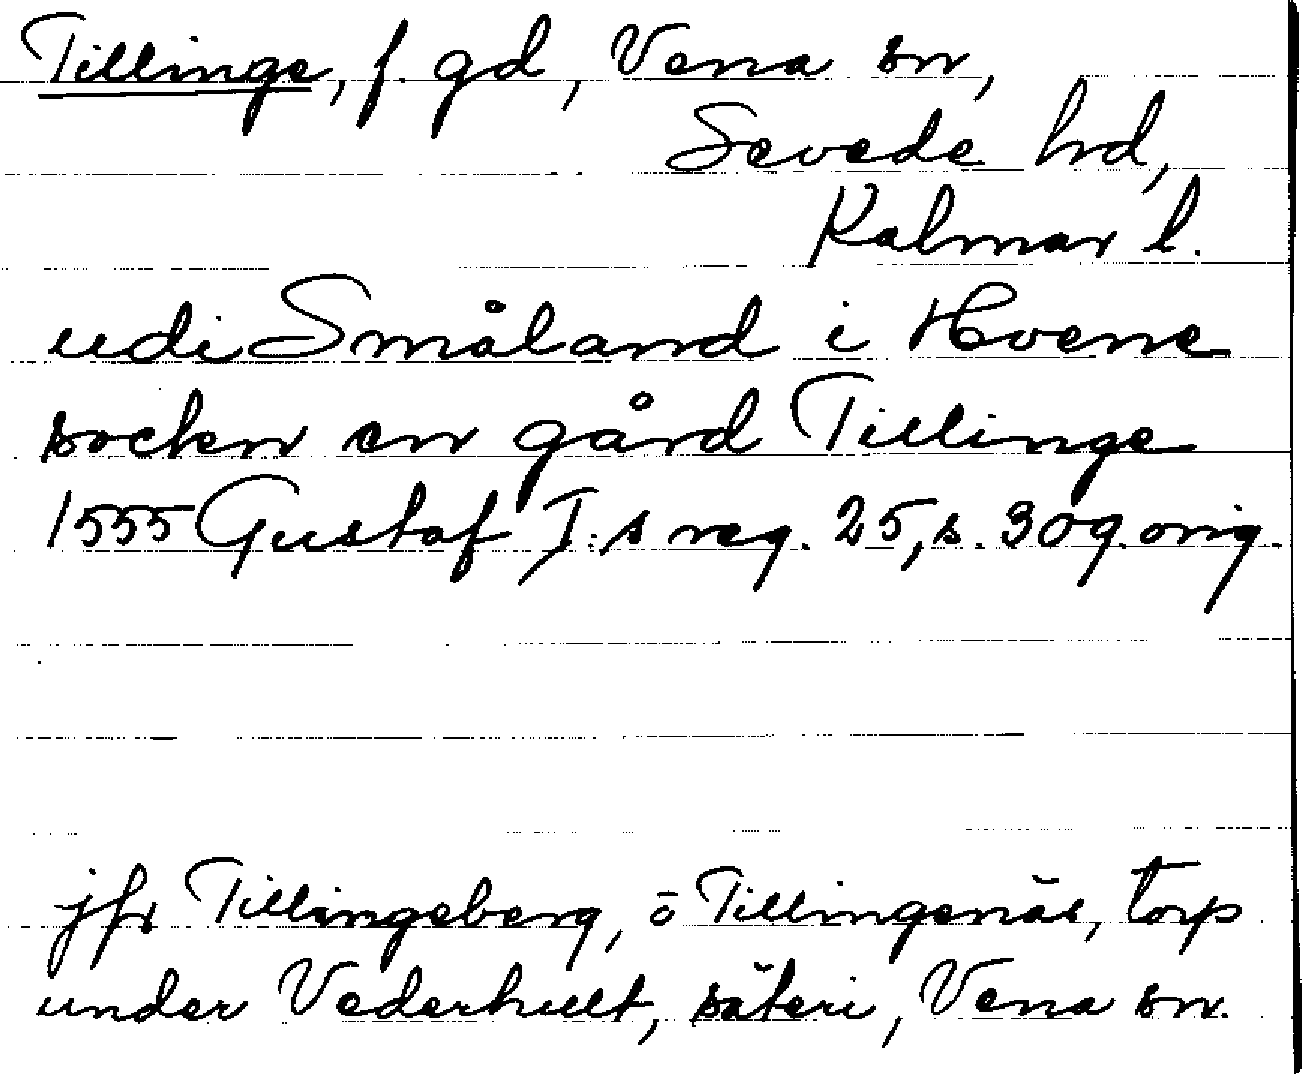 Tillinge, f. gd, Vena sn,
Sevede hd,
Kalmar l.
udi Småland i Hvene
socken en gård Tillinge
1555 Gustaf I:s reg. 25, s. 309. orig.
jfr Tillingeberg, ö Tillingenäs, torp
under Vederhult, säteri, Vena sn.